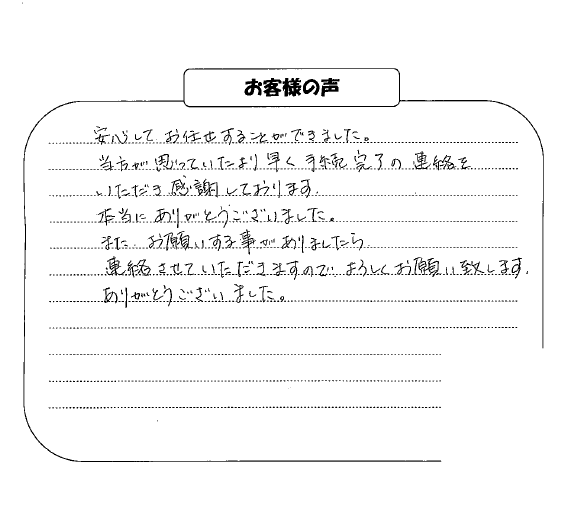 お客様の声
安心して お任せすることができました。
当方が思っていたより早く手続完了の連絡を
いただき感謝しております.
本当にありがとうございました。
また お願いする事がありましたら
連絡させていただきますので よろしくお願い致します.
ありがとうございました。